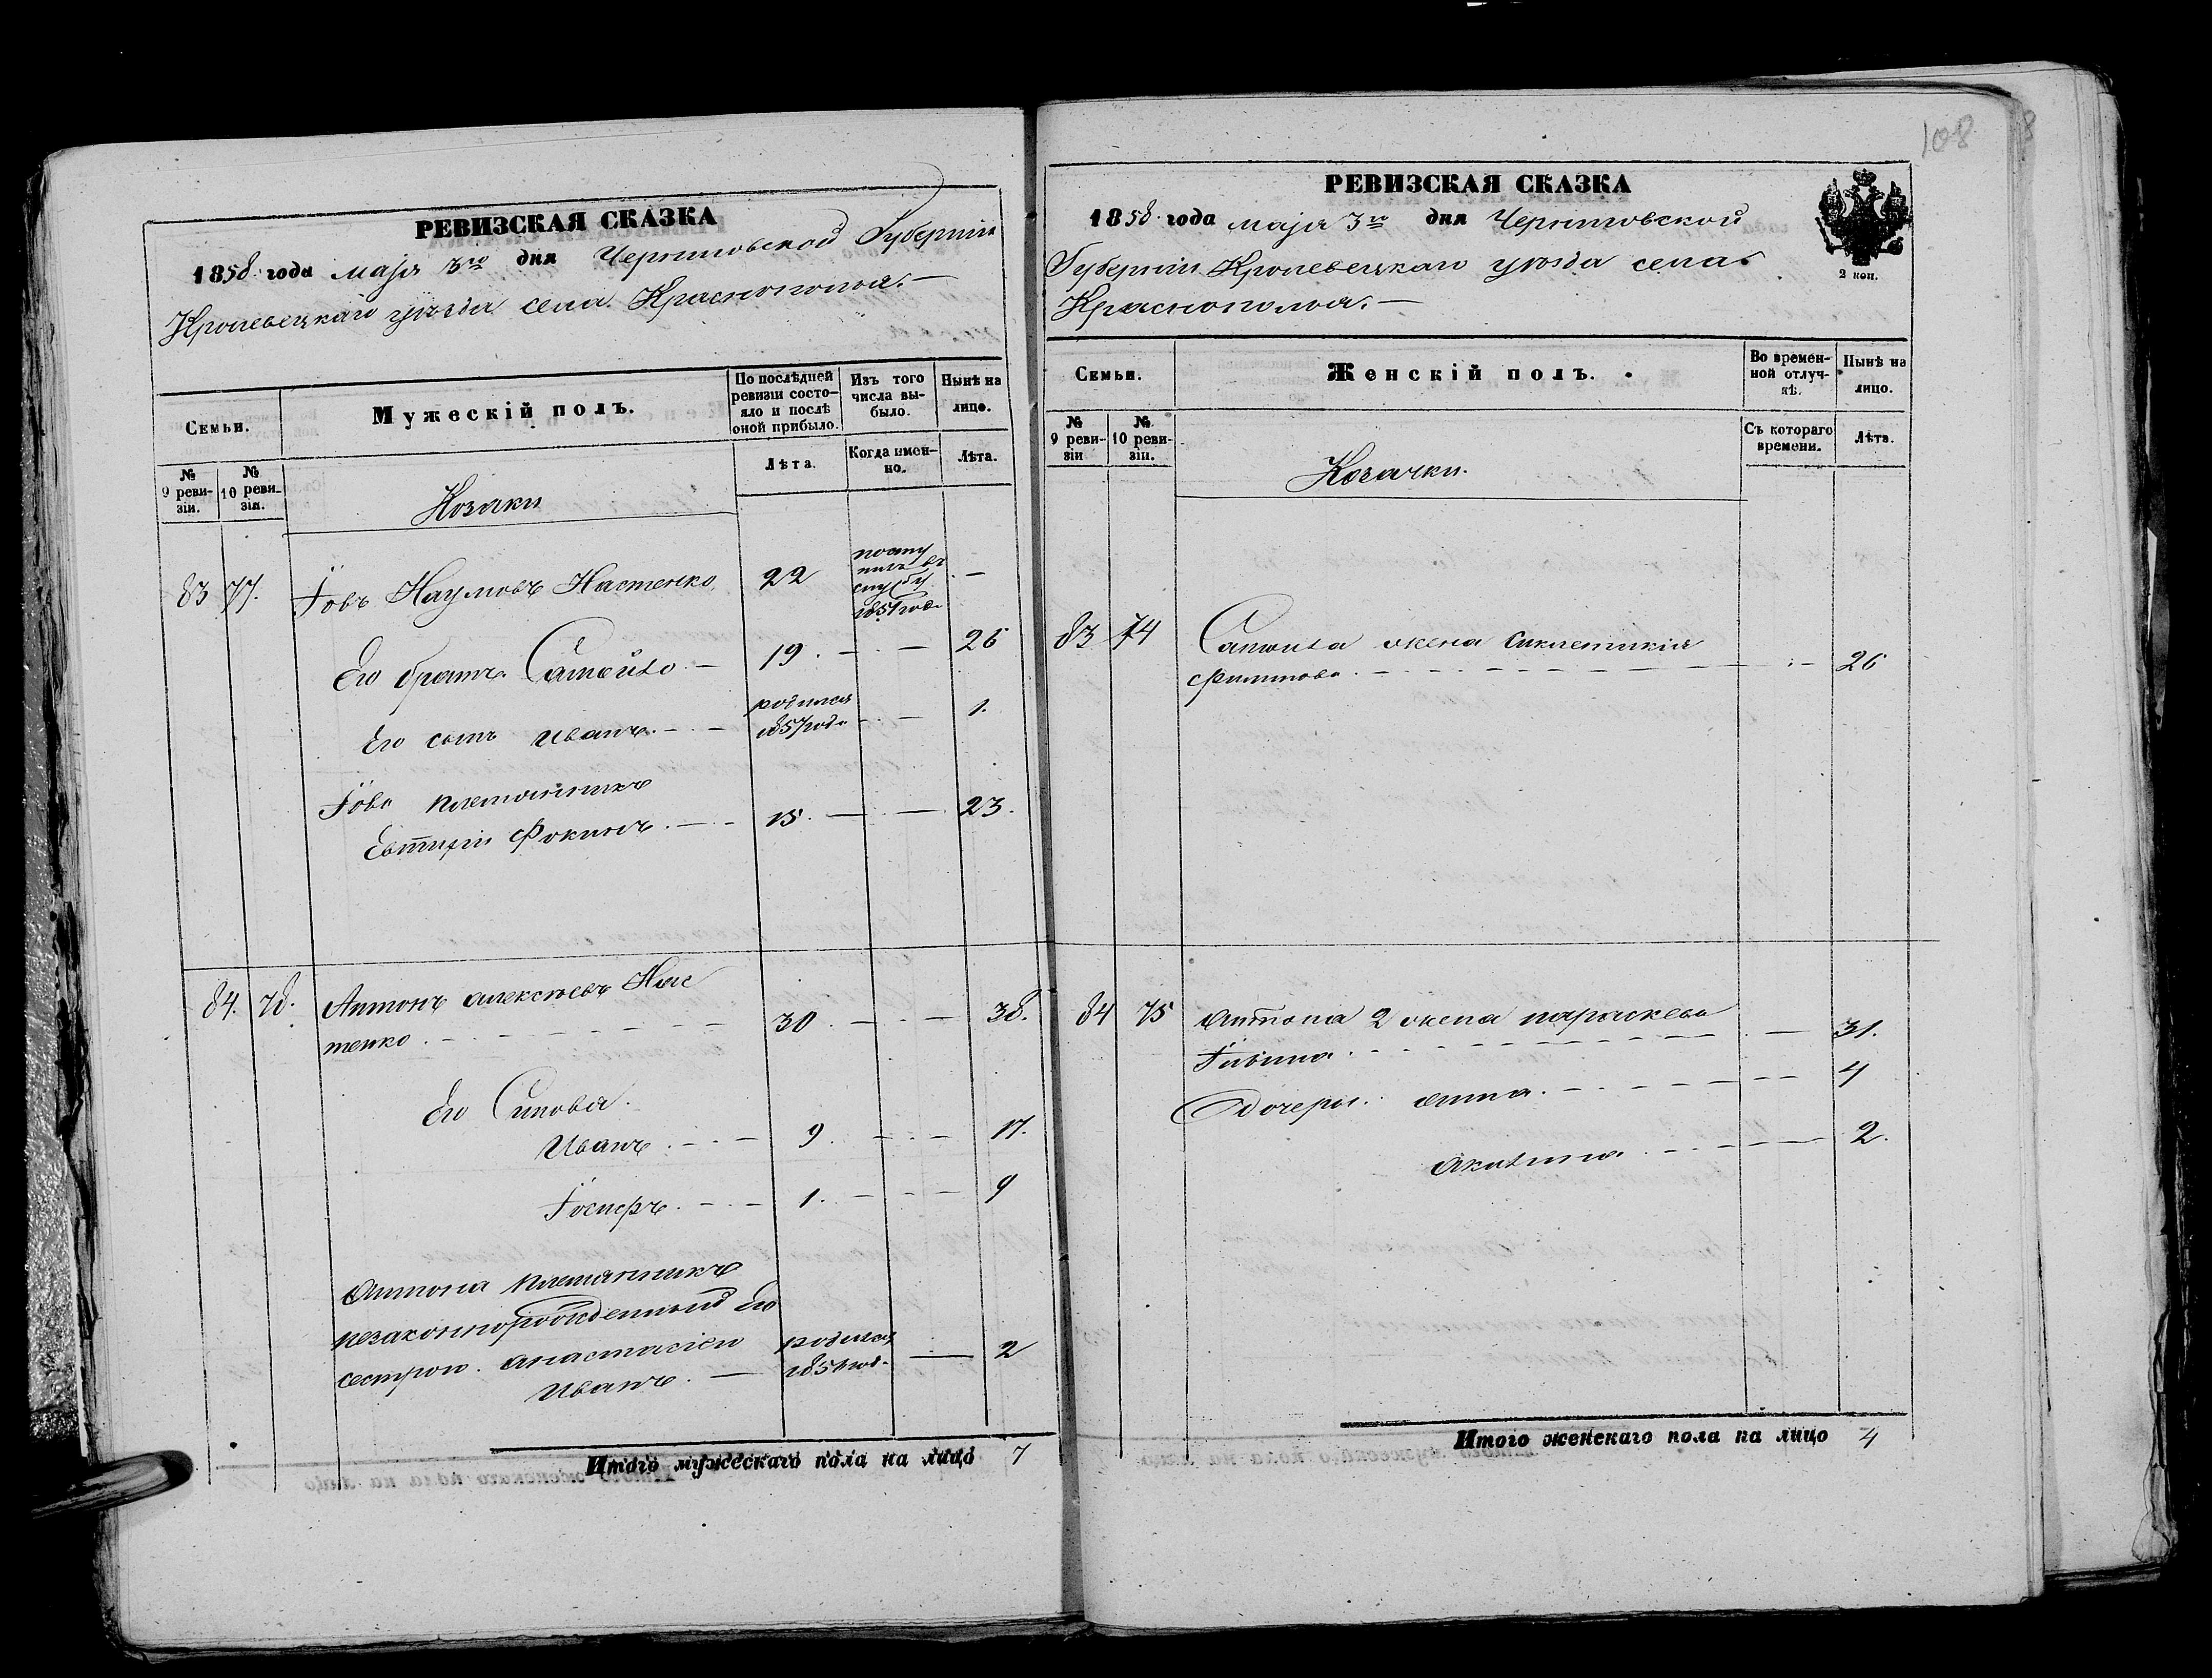 108
РЕВИЗСКАЯ СКАЗКА
1858 года маія 3го дня Черниговской Губерніи
Кролевецкаго уѣзда села Краснополья.
Семьи.
Мужескій полъ.
По послѣдней ревизіи состо-
яло и послѣ
оной прибыло.
Изъ того
числа вы-
было.
Нынѣ на
лицо.
№
9 реви-
зіи.
№
10 реви-
зіи.
Козаки
Лѣта.
Когда имен-
но.
Лѣта.
83 77. Іовъ Наумовъ Настенко 22 посту
пилъ въ
службу
1851 год. —
Его братъ Самойло — 19. — — 26
Его сынъ Иванъ. — родился
1857 год. — 1.
Іова племянникъ
Евтихій Фокинъ. — 15. — — 23.
84. 78. Антонъ Алексѣевъ Нас
тенко. — 30. — — 38.
Его Сынова.
Иванъ. — 9. — 17.
Іосифъ. — 1. — 9
Антона племянникъ
незаконнорожденный Его
сестрою Анастасіею
Иванъ. — родился
1856 год. — 2
Итого мужескаго пола на лицо 7
РЕВИЗСКАЯ СКАЗКА
1858 года маія 3го дня Черниговской
Губерніи Кролевецкаго уѣзда села
Краснополья.
2 коп.
Семьи.
Женскій полъ.
Во времен-
ной отлуч-
кѣ.
Нынѣ на
лицо.
№
9 реви-
зіи
№
10 реви-
зіи.
Козачки.
Съ котораго
времени.
Лѣта.
83 74 Самойла жена Синклетикія
Филипова. — 26
84 75 Антона 2 жена параскева
31.
Дочери: Анна. — 4
Акилина. — 2.
Итого женскаго пола на лицо 4